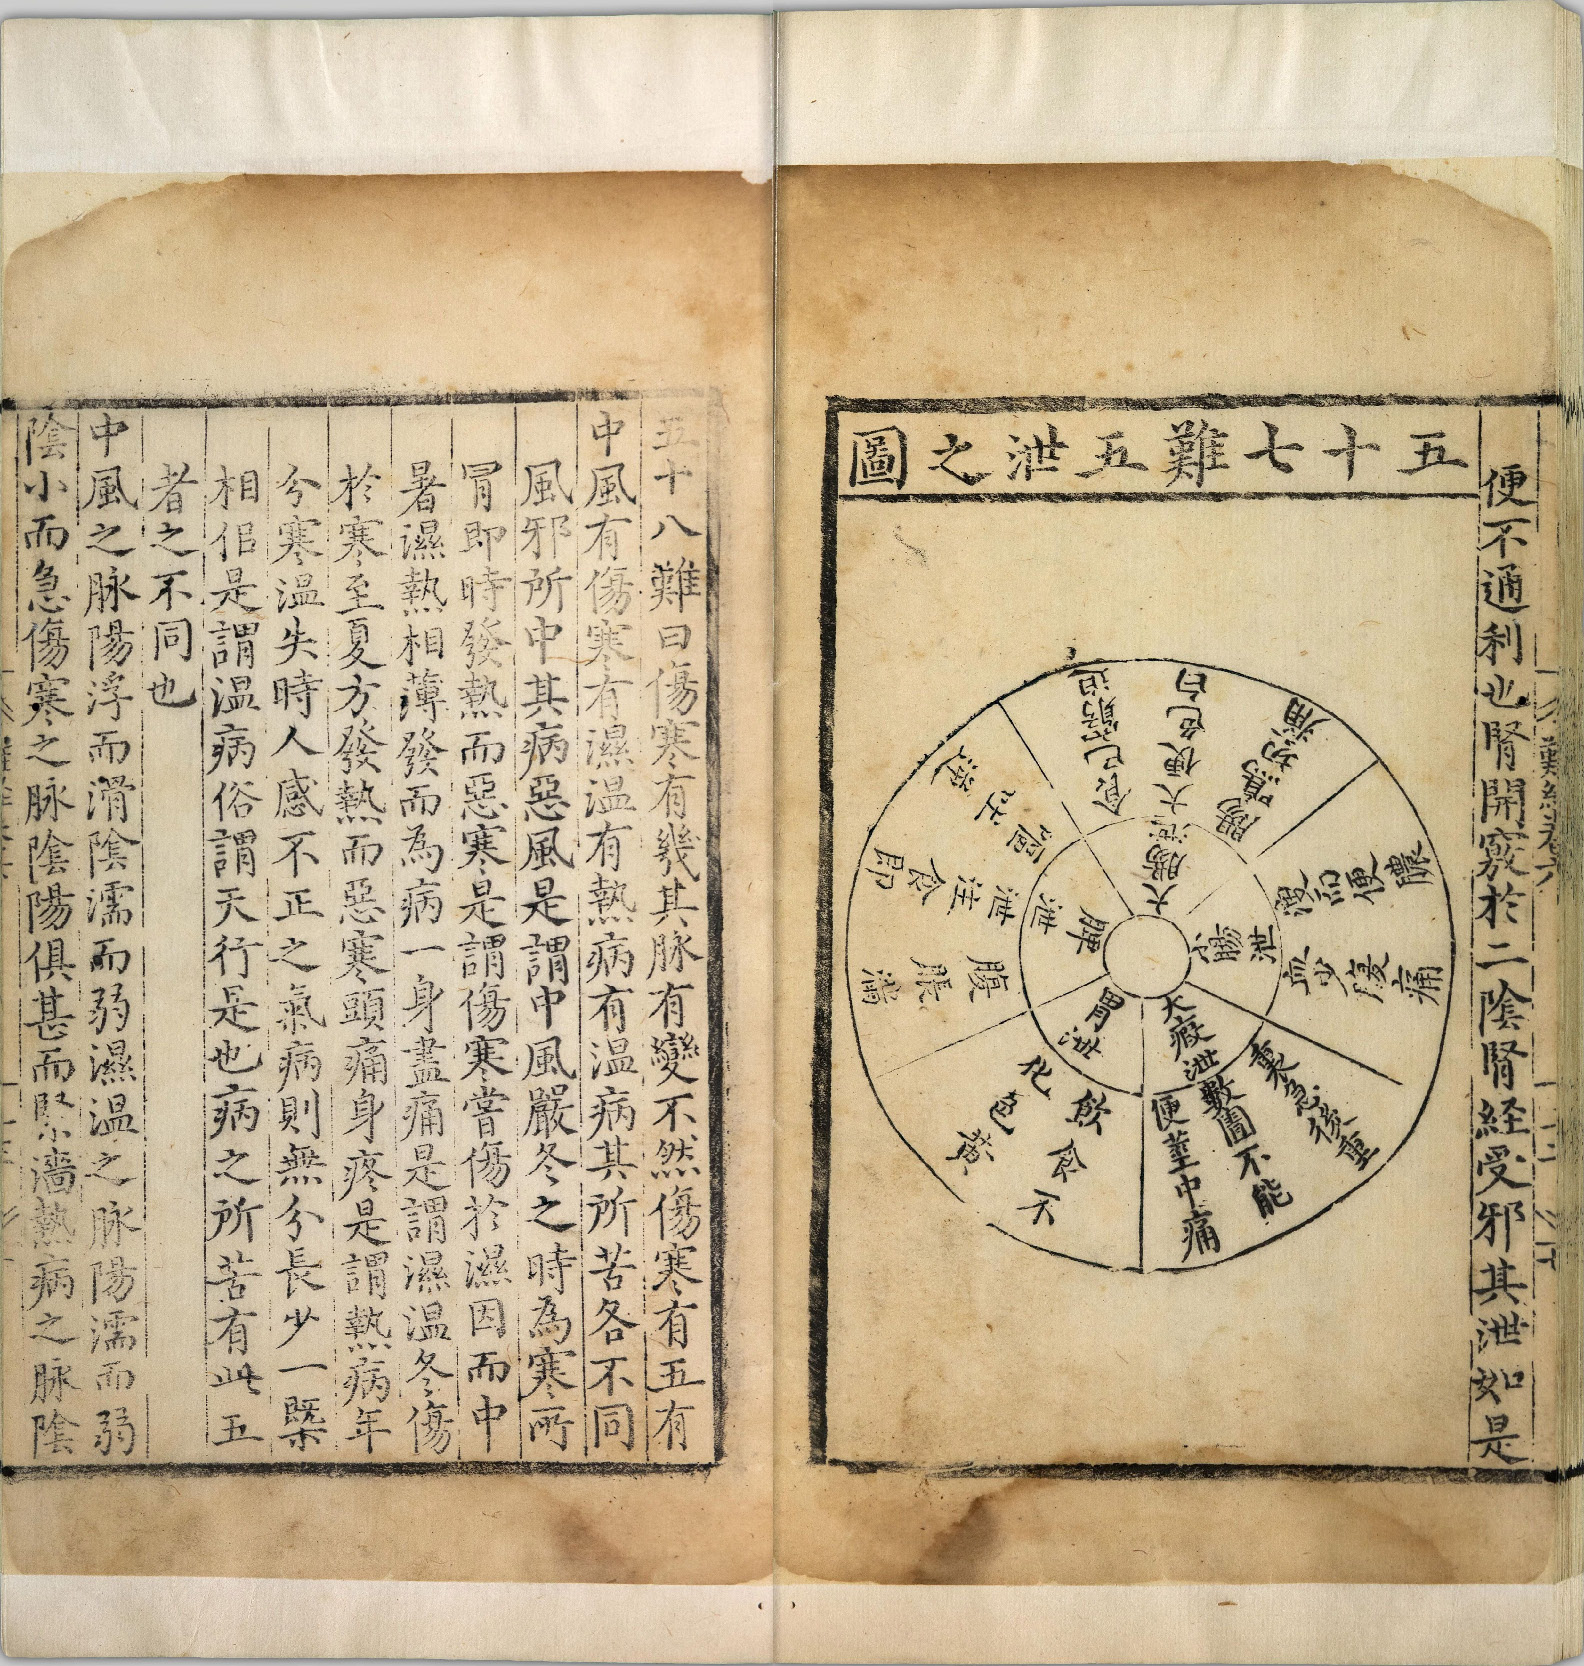 便不通利也腎開竅於二陰腎経受邪其泄如是
五十七難五泄之圖
大腸泄
食已窘迫
大便色白
腸鳴切痛
小腸泄
溲而便膿
血少腹痛
大瘕泄
裏急後重
數圊不能
便莖中痛
胃泄
飲食不
化色黃
脾泄
腹脹滿
泄注
食即
嘔吐
逆
五十八難曰傷寒有幾其脉有變不然傷寒有五有
中風有傷寒有濕温有熱病有温病其所苦各不同
風邪所中其病惡風是謂中風嚴冬之時為寒所
冐即時發熱而惡寒是謂傷寒嘗傷於濕因而中
暑濕熱相薄發而為病一身盡痛是謂濕温冬傷
於寒至夏方發熱而惡寒頭痛身疼是謂熱病年
分寒温失時人感不正之氣病則無分長少一槩
相佀是謂温病俗謂天行是也病之所苦有此五
者之不同也
中風之脉陽浮而滑陰濡而弱濕温之脉陽濡而弱
陰小而急傷寒之脉陰陽俱甚而緊濇熱病之脉陰